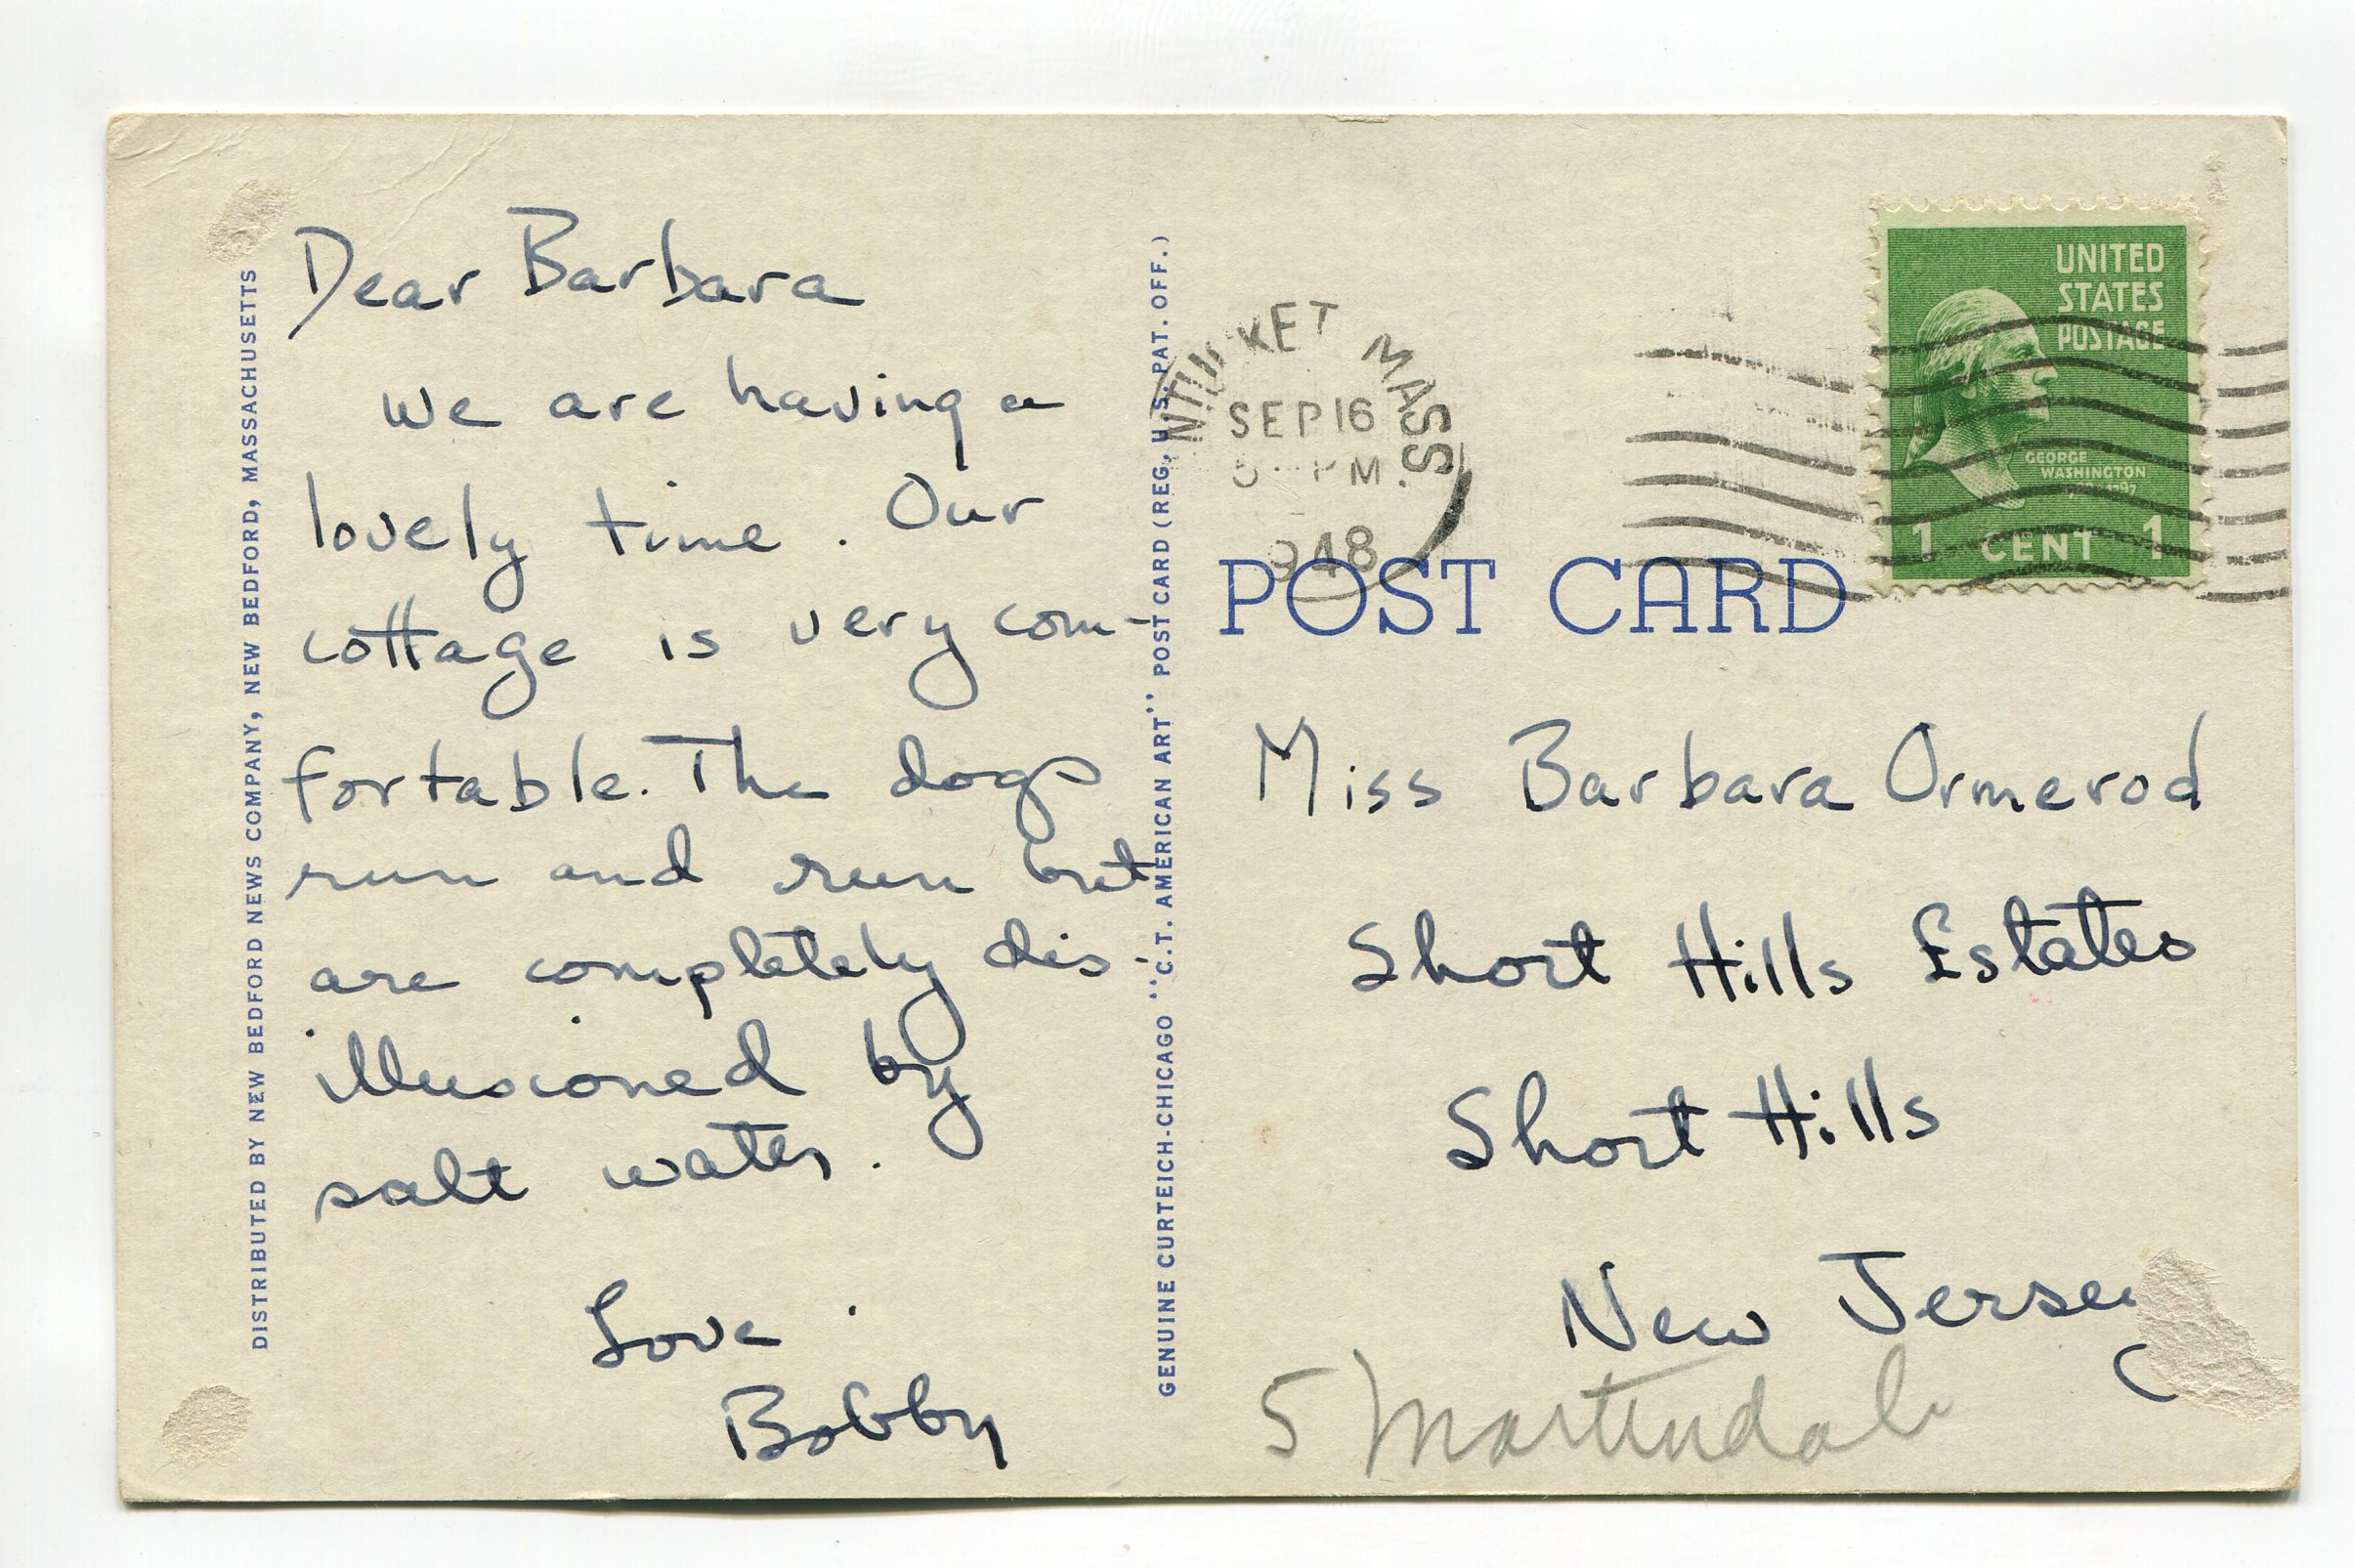 Dear Barbara
We are having a
lovely time. Our
cottage is very com-
fortable. The dogs
run and run but
are completely dis-
illusioned by
salt water.
Love
Bobby
DISTRIBUTED BY NEW BEDFORD NEWS COMPANY, NEW BEDFORD, MASSACHUSETTS
GENUINE CURTEICH-CHICAGO "C.T. AMERICAN ART" POST CARD (REG. U.S. PAT. OFF.)
NTUCKET MASS.
SEP 16
5 PM
948
UNITED
STATES
POSTAGE
GEORGE
WASHINGTON
1 CENT 1
POST CARD
Miss Barbara Ormerod
Short Hills Estates
Short Hills
New Jersey
5 Martindale